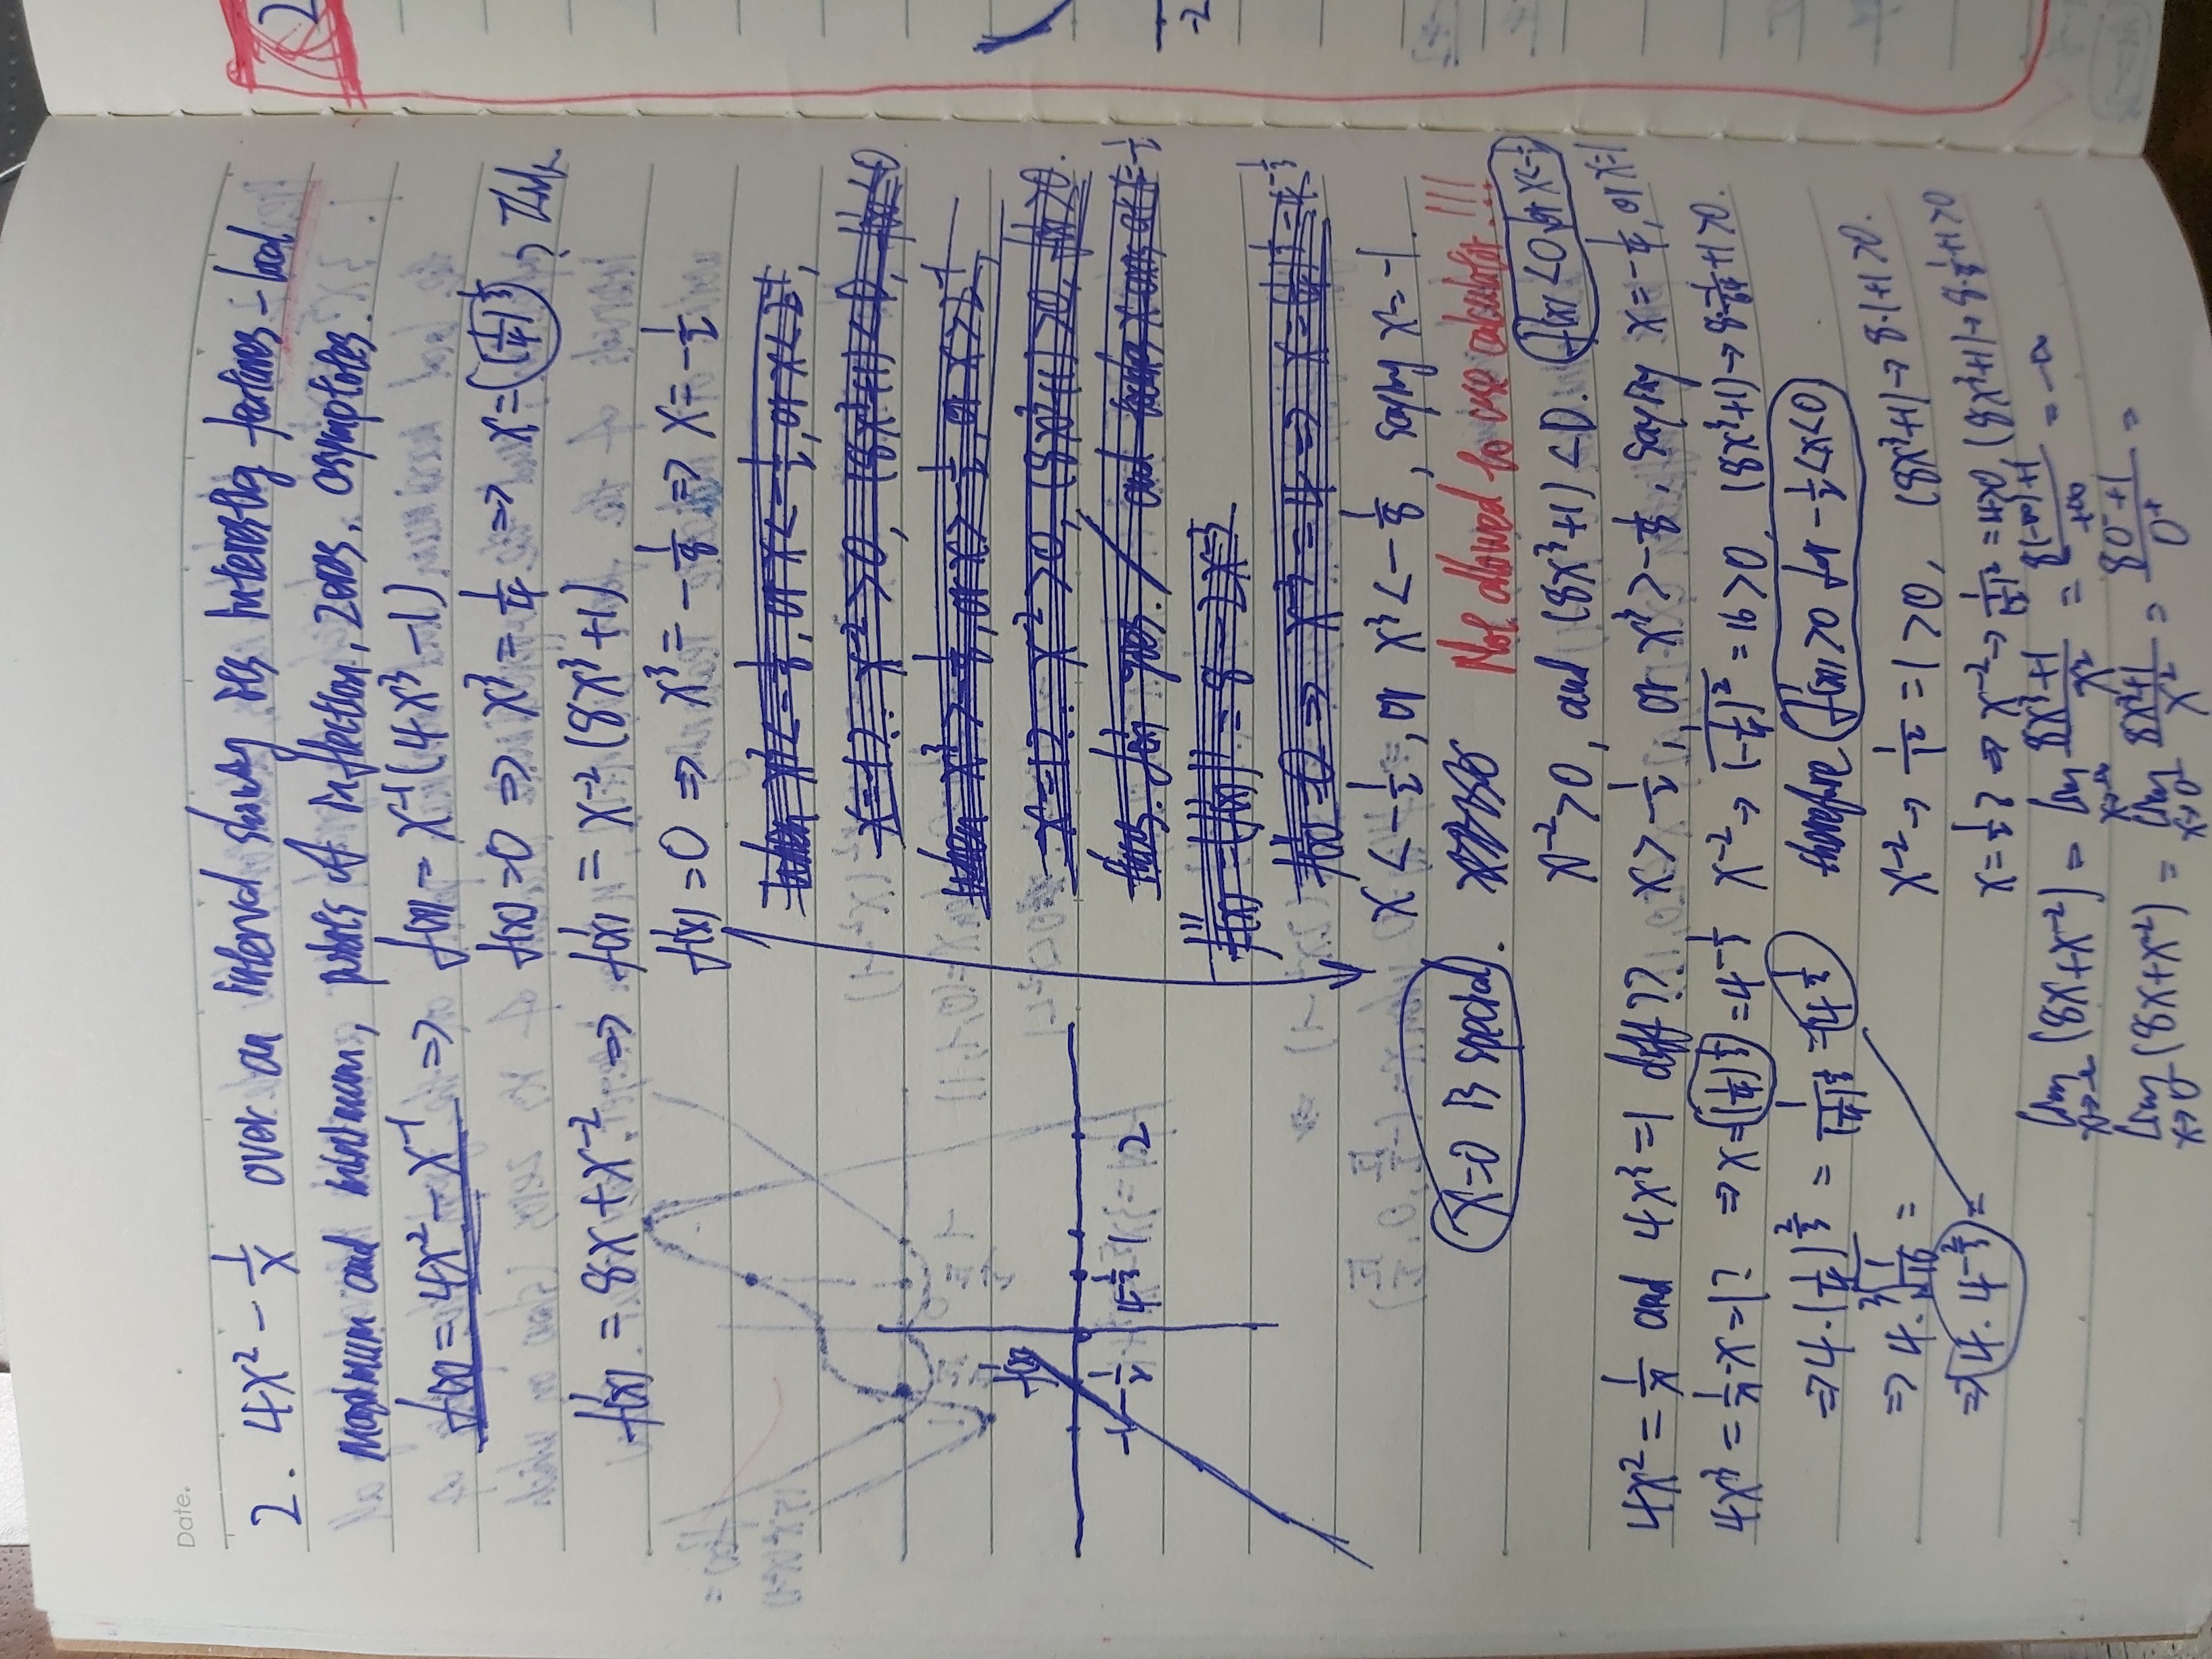 Date.
2. 4x² - 1/x over an interval showing its interesting features - local
maximum and minimum, points of inflection, zeros, asymptotes.
f(x) = 4x² - x⁻¹ ⇒ f(x) = x⁻¹(4x³ - 1)
f(x) = 0 ⇒ x³ = 1/4 ⇒ x = (1/4)^(1/3) ?
f'(x) = 8x + x⁻² ⇒ f'(x) = x⁻²(8x³ + 1)
f'(x) = 0 ⇒ x³ = -1/8 ⇒ x = -1/2
when x³ < -1/8, or x < -1/2, or x < 2⁻¹,
x = -1?: x⁻² > 0, (8x³+1) < 0, f'(x) < 0
when x³ > -1/8, or x > -1/2, or x > 2⁻¹,
x = 1?: x⁻² > 0, (8x³+1) > 0, f'(x) > 0.
f'(x)
-1 -1/2 4^(-1/3) 1 2
thus. f'(x) goes. / and touches x axis at x = -1/2
f''(x) = (f'(x))' = 8 - 2x⁻³
f''(x) = 0 ⇒ x⁻³ = 4 ⇒ x = (1/4)^(1/3) = 4^(-1/3)
x < -1/2, or x³ < -1/8, saying x = -1.
x=0 is special. Not allowed to use calculator!!!
x⁻² > 0, and (8x³+1) < 0. f'(x) < 0 for x < -1/2
4x² = 1/x and 4x³ = 1 diff?? x > -1/2, or x³ > -1/8, saying x = -1/4, or x = 1
4x³ = 1/x · x = 1? ⇒ x = (1/4)^(1/3) = 4^(-1/3) x⁻² → 1/(-1/4)² = 16 > 0, (8x³+1) → 8·-1/64 + 1 > 0.
⇒ 4·(1/4)^(2/3) = 1/(1/4)^(1/3) = 4^(1/3) therefore f'(x) > 0 for -1/2 < x < 0
⇒ 4·∛(1/16) = x⁻² → 1/1² = 1 > 0, (8x³+1) → 8·1+1 > 0.
⇒ 4·4^(-2/3) = x = 1/2? ⇒ x⁻² → 1/(1/2)² = 4 > 0, (8x³+1) → 8·1/8+1 > 0
lim x→-∞ (8x + x⁻²) = lim x→-∞ (8x³+1)/x² = (8(-∞)+1)/+∞ = -∞
lim x→0⁻ (8x + x⁻²) = lim x→0⁻ (8x³+1)/x² = (80⁻+1)/0⁺ =